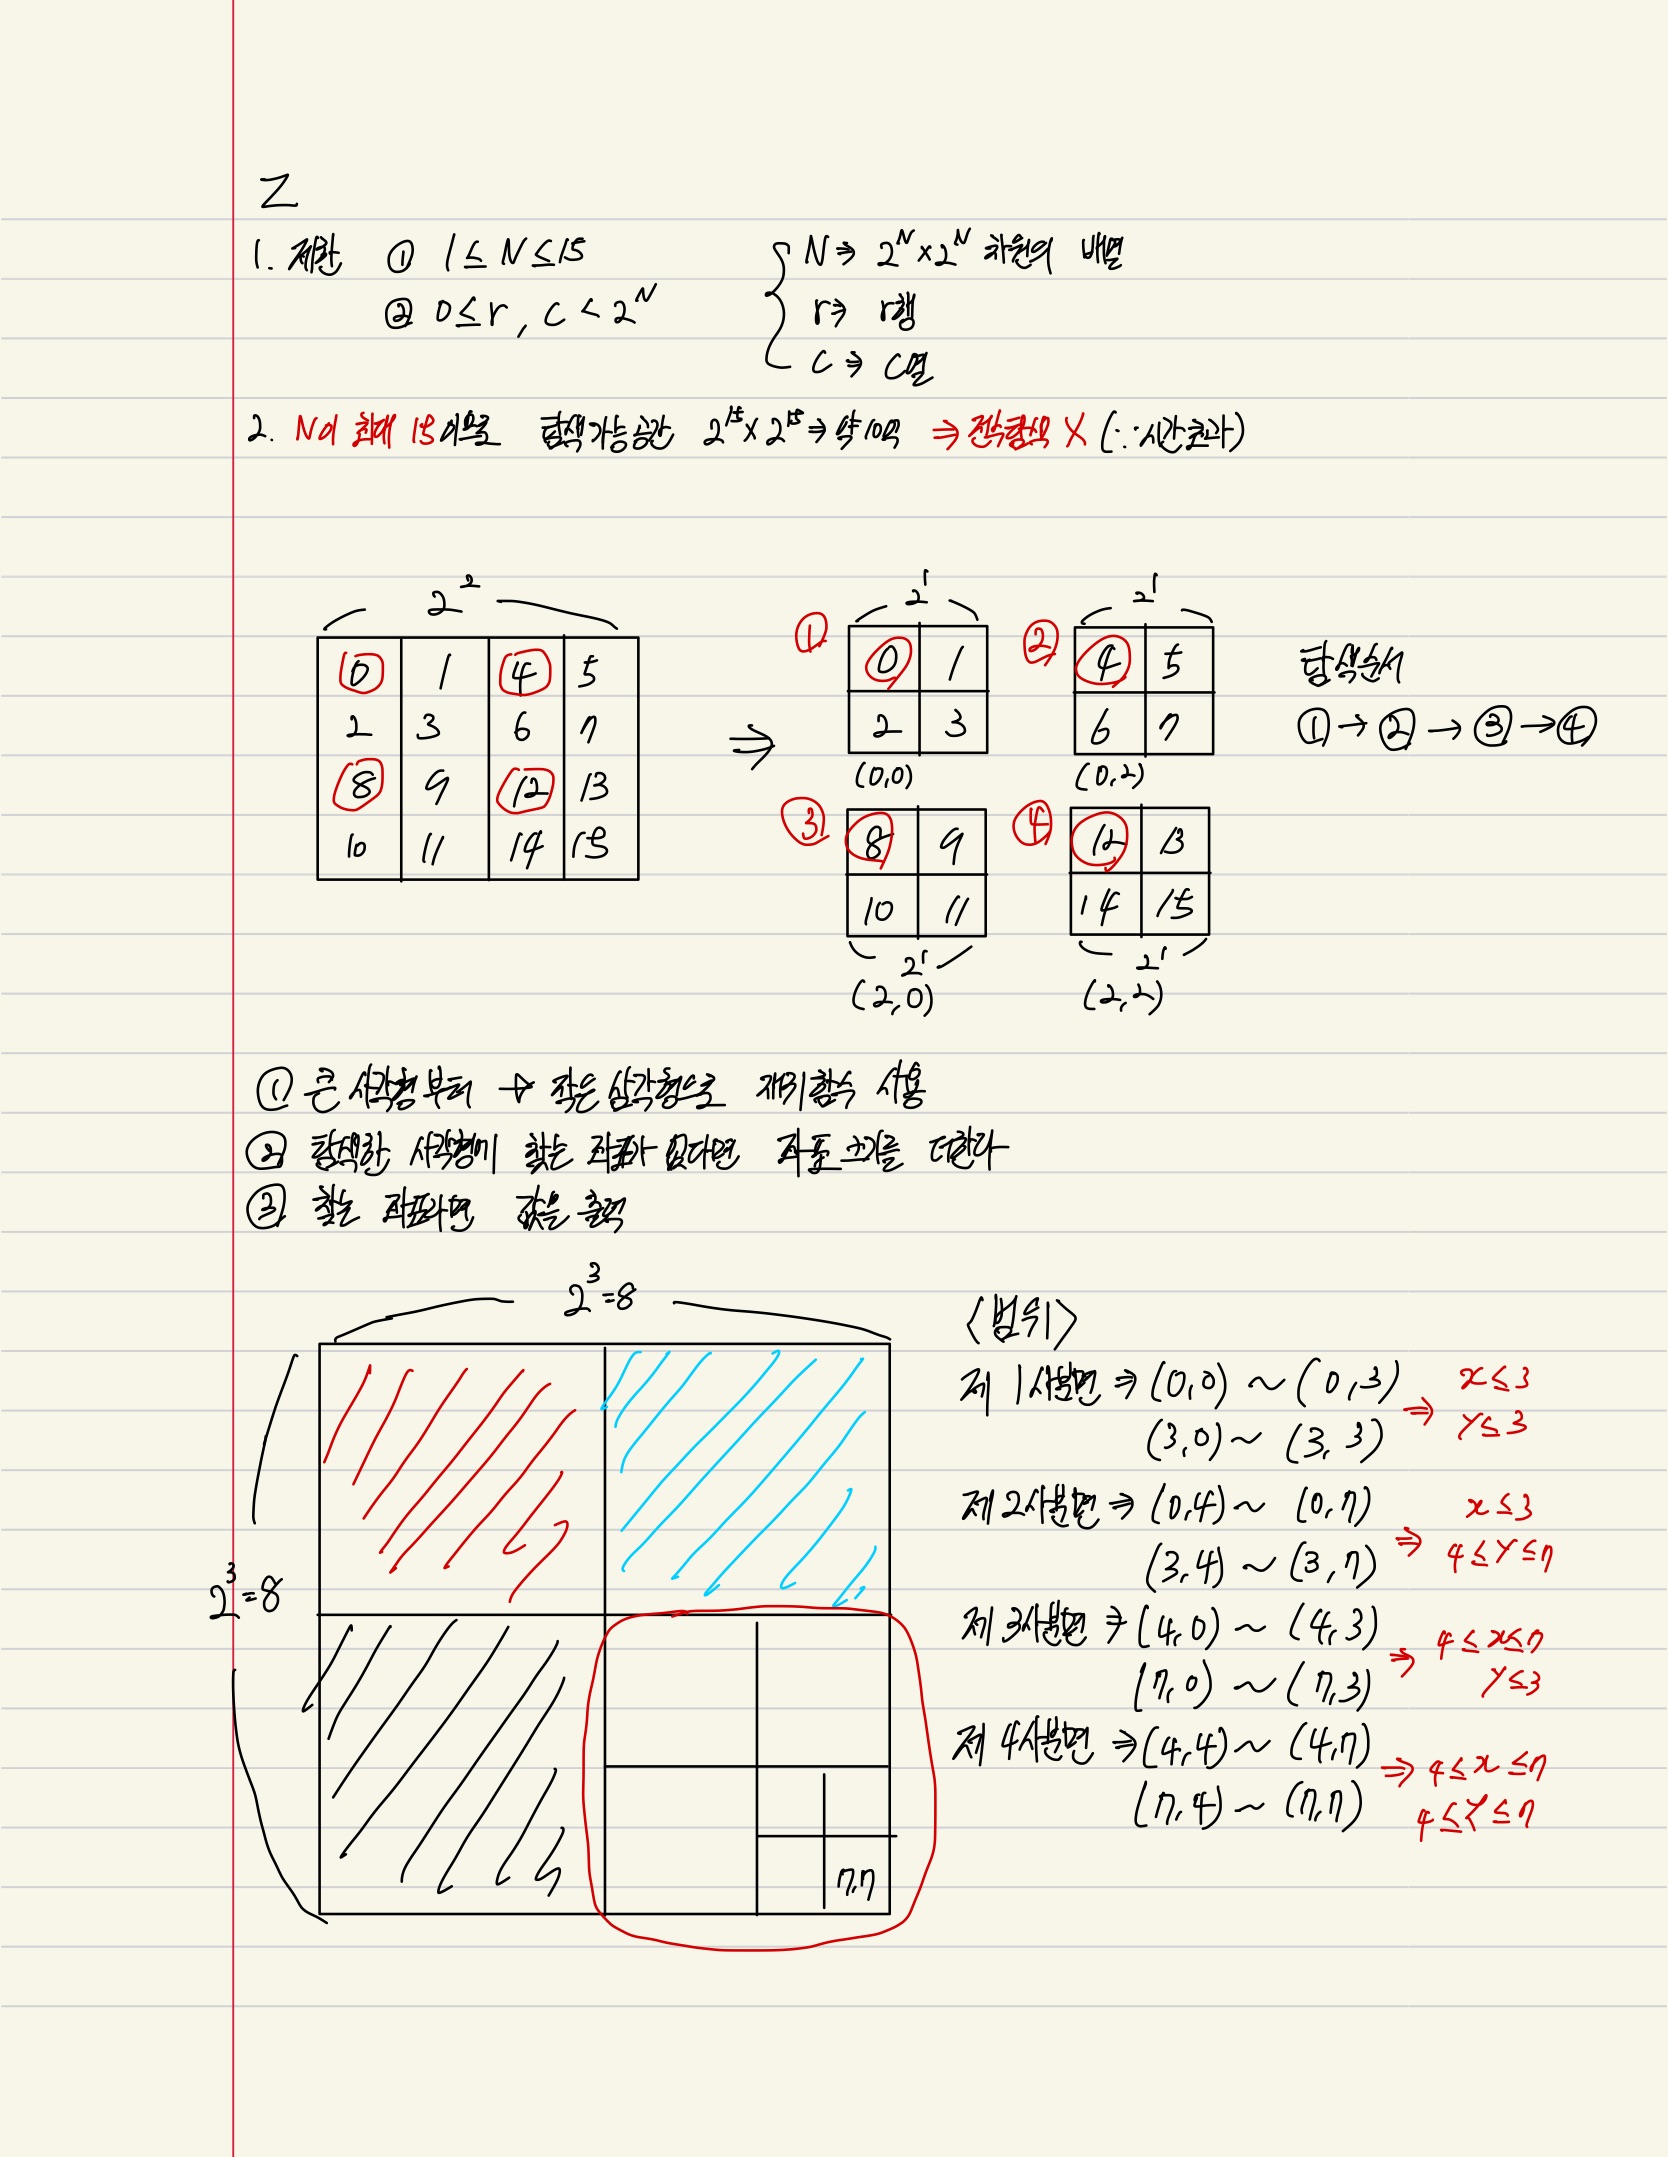 Z
1. 제한 ① 1 ≤ N ≤ 15
② 0 ≤ r, c < 2^N
N ⇒ 2^N × 2^N 차원의 배열
r ⇒ r행
c ⇒ c열
2. N이 최대 15이므로 탐색가능공간 2^15 × 2^15 ⇒ 약 10억 ⇒ 전수탐색 X (∵ 시간초과)
2^2
0 1 4 5
2 3 6 7
8 9 12 13
10 11 14 15
⇒
① 2^1
0 1
2 3
(0,0)
② 2^1
4 5
6 7
(0,2)
③
8 9
10 11
2^1
(2,0)
④
12 13
14 15
2^1
(2,2)
탐색순서
① → ② → ③ → ④
① 큰 사각형부터 → 작은 삼각형으로 재귀함수 사용
② 탐색한 사각형에 찾는 좌표가 없다면 좌표 크기를 더한다
③ 찾는 좌표라면 값을 출력
2^3=8
2^3=8
7,7
<범위>
제 1사분면 ⇒ (0,0) ~ (0,3)
(3,0) ~ (3,3)
⇒ x ≤ 3
y ≤ 3
제 2사분면 ⇒ (0,4) ~ (0,7)
(3,4) ~ (3,7)
⇒ x ≤ 3
4 ≤ y ≤ 7
제 3사분면 ⇒ (4,0) ~ (4,3)
(7,0) ~ (7,3)
⇒ 4 ≤ x ≤ 7
y ≤ 3
제 4사분면 ⇒ (4,4) ~ (4,7)
(7,4) ~ (7,7)
⇒ 4 ≤ x ≤ 7
4 ≤ y ≤ 7